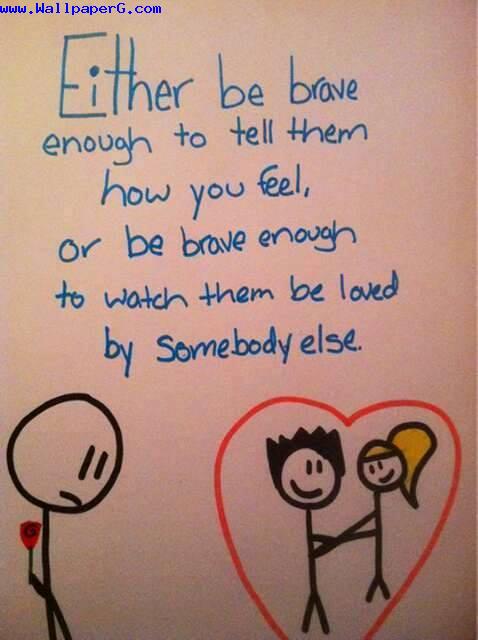 www.WallpaperG.com
Either be brave
enough to tell them
how you feel,
or be brave enough
to watch them be loved
by somebody else.
G